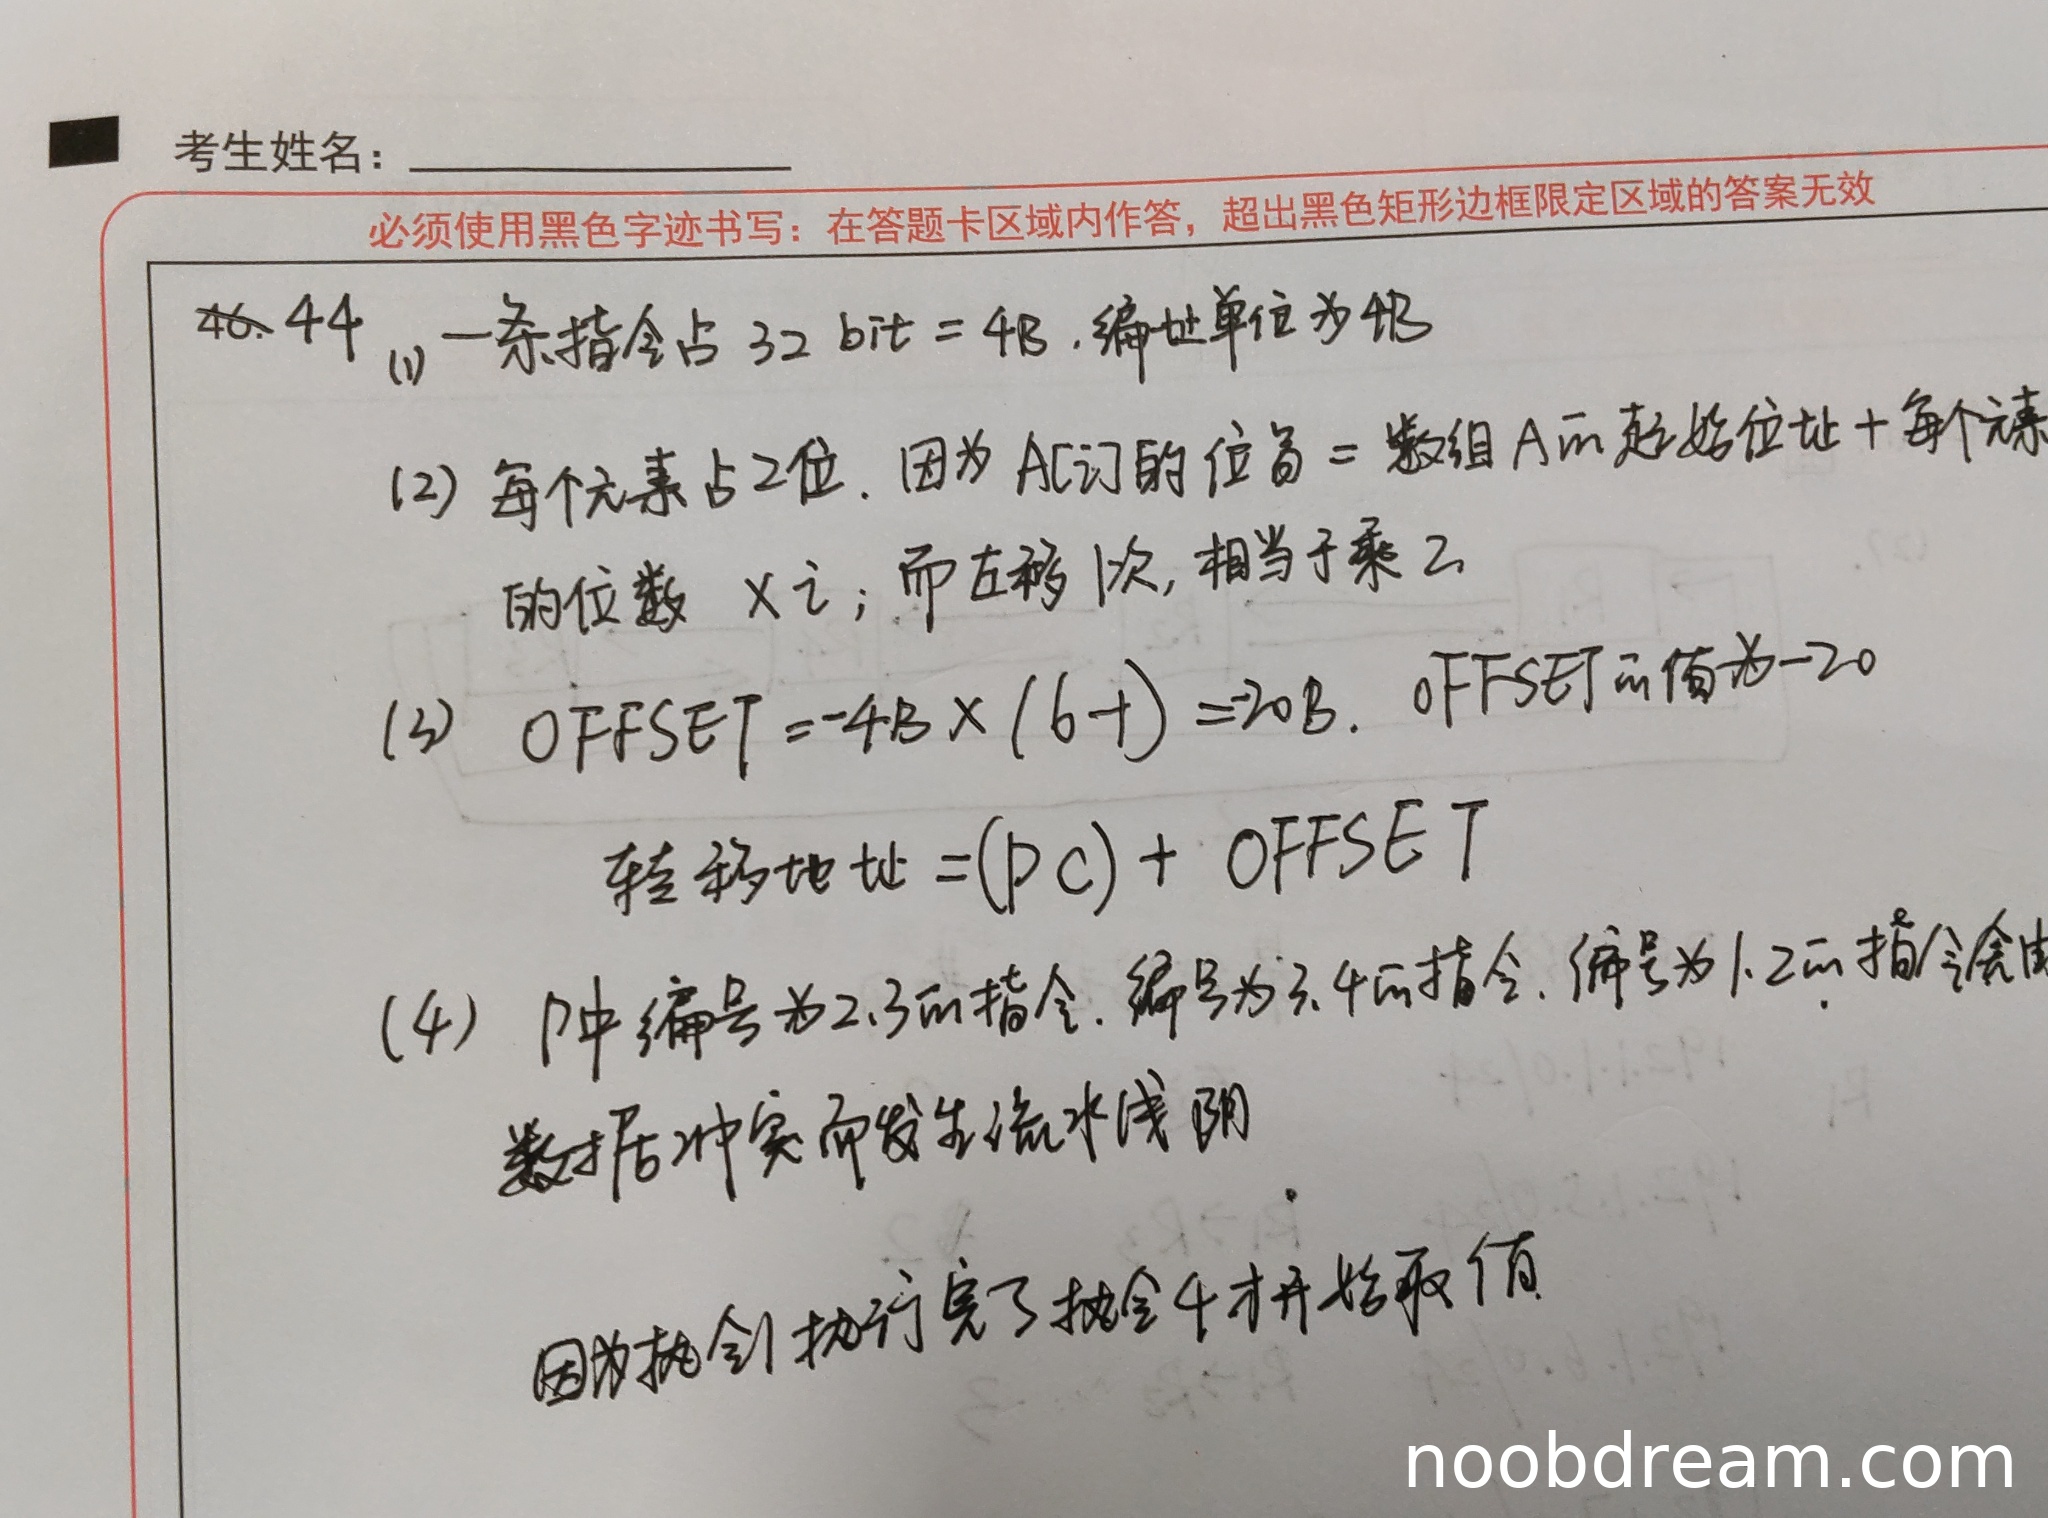 考生姓名：
必须使用黑色字迹书写：在答题卡区域内作答，超出黑色矩形边框限定区域的答案无效
46. 44 (1) 一条指令占 32 bit = 4B . 编址单位为4B
(2) 每个元素占2位. 因为 A[i]的位置 = 数组A的起始位址 + 每个元素
的位数 × i ; 而左移1次, 相当于乘2
(3) OFFSET = -4B × (6-1) = -20B. OFFSET的值为-20
转移地址 = (PC) + OFFSET
(4) P中编号为2.3的指令. 编号为3.4的指令. 编号为1.2的指令会由
数据冲突而发生流水线阴
因为执令1执行完了执令4才开始取值
noobdream.com